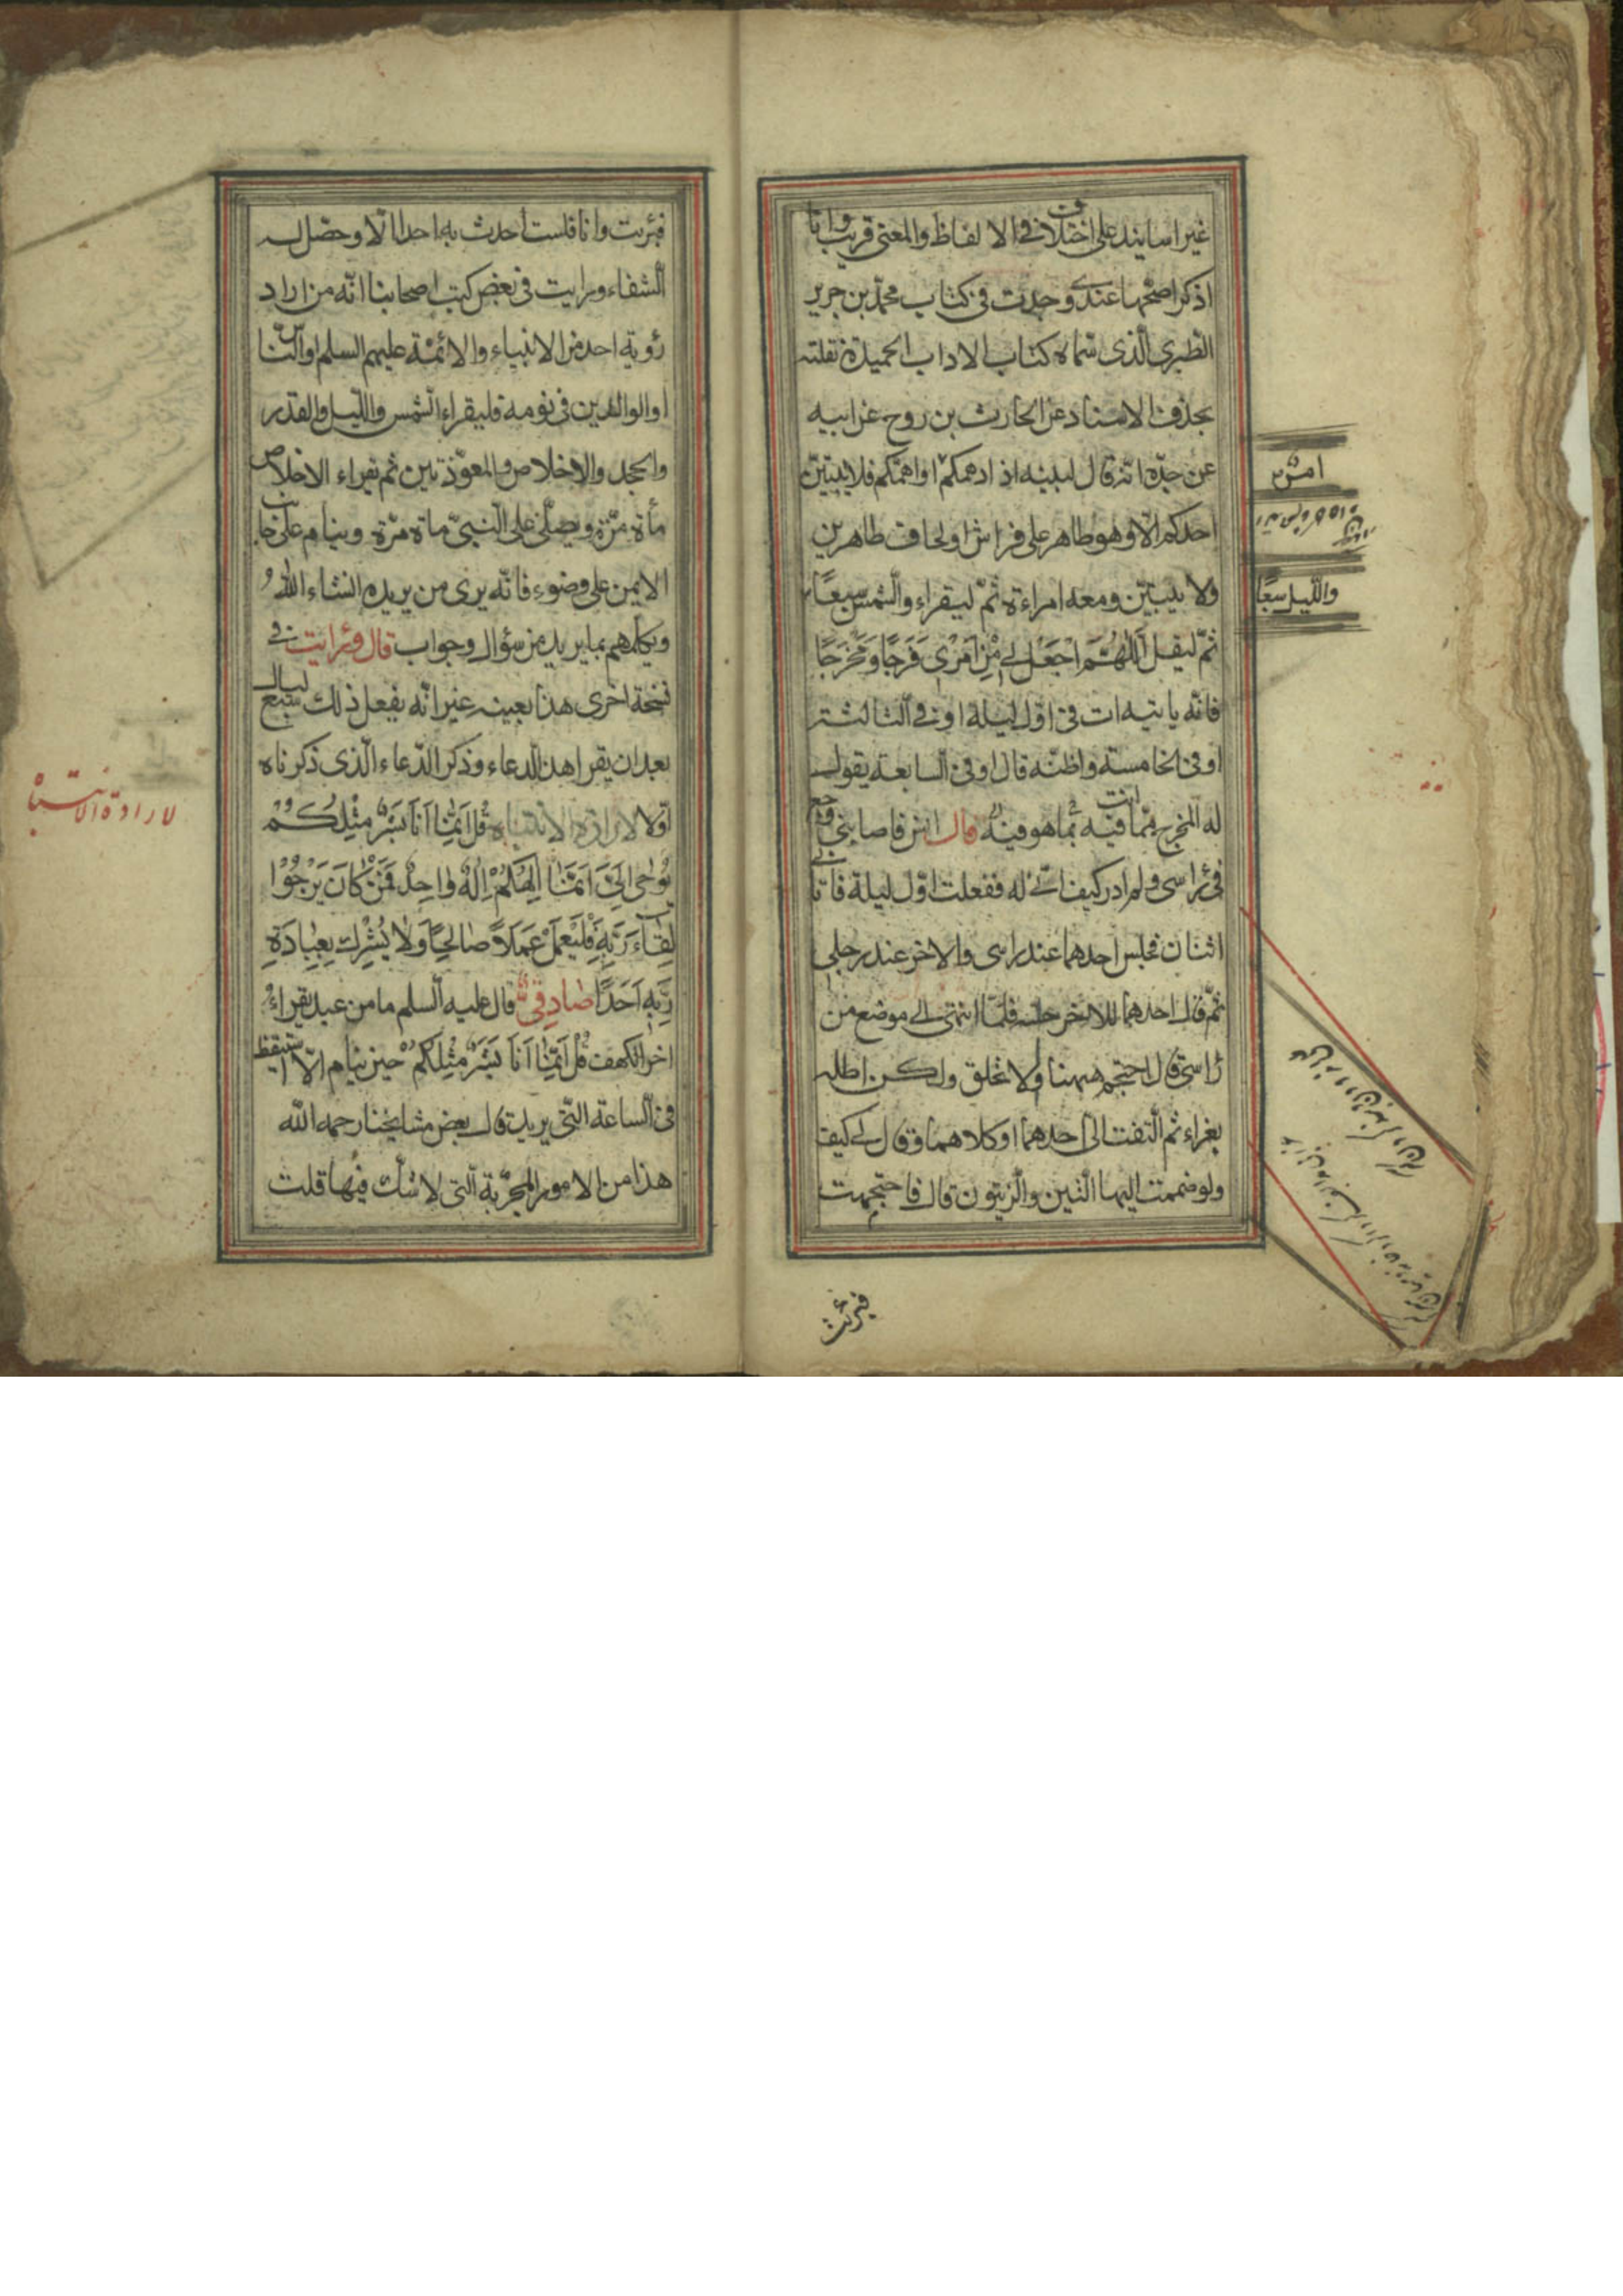 غير اسانيد على اختلاف فى الالفاظ والمعنى قريب وانا
اذكر اصحّها عندى وجدت فى كتاب محمّد بن جرير
الطّبرى الّذى سمّاه كتاب الاداب الحميدة نقلته
بحذف الاسناد عن الحارث بن روح عن ابيه
عن جدّه انّه قال لبنيه اذا دهمكم او اهمّكم فلا يبيتنّ
احدكم الّا وهو طاهر على فراش ولحاف طاهرين
ولا يبيتنّ ومعه امراءة ثمّ ليقراء والشمس سبعًا
والليل سبعًا
ثمّ ليقل اَللّٰهُمَّ اجْعَلْ لى مِنْ اَمْرى فَرَجًا وَمَخْرَجًا
فانّه ياتيه ات فى اوّل ليلة او فى الثالثة
او فى الخامسة واظنّه قال او فى السابعة يقول
له المخرج ممّا انت فيه بما هو فيه قال انس فاصابنى وجع
فى راسى ولم ادر كيف اتى له ففعلت اوّل ليلة فاتانى
اثنان فجلس احدهما عند راسى والاخر عند رجلى
ثمّ قال احدهما للاخر جسّه فلمّا انتهى الى موضع من
راسى قال احتجم ههنا ولا تحلق ولكن اطله
بغراء ثم التفت الىّ احدهما او كلاهما وقال لى كيف
ولو ضممت اليها التين والزيتون قال فاحتجمت
فبرئت
فبرئت وانا فلست احدث به احدا الّا وحصل له
الشفاء ورايت فى بعض كتب اصحابنا انّه من اراد
رؤية احد من الانبياء والائمّة عليهم السلم او النّاس
او الوالدين فى نومه فليقراء الشمس والليل والقدر
والجحد والاخلاص والمعوّذتين ثم يقراء الاخلاص
مأة مرّة ويصلّى على النبىّ ماة مرّة وينام على جانب
الايمن على وضوء فانّه يرى من يريده انشاء الله
ويكلمهم بما يريد من سؤال وجواب قال ورايت فى
نسخة اخرى هذا بعينه غير انّه يفعل ذلك سبع ليال
بعد ان يقرا هذا الدعاء وذكر الدّعاء الّذى ذكرناه
اوّلا لارادة الانتباه قُلْ اِنَّمٰا اَنَا بَشَرٌ مِثْلُكُمْ
لارادة الانتباه
يُوحٰى اِلَىَّ اَنَّمٰا اِلٰهُكُمْ اِلٰهٌ وٰاحِدٌ فَمَنْ كٰانَ يَرْجُوْا
لِقٰاءَ رَبِّهِ فَلْيَعْمَلْ عَمَلًا صٰالِحًا وَلٰا يُشْرِكْ بِعِبٰادَةِ
رَبِّهِ اَحَدًا صادقى قال عليه السلم ما من عبد يقراء
اخر الكهف قُلْ اِنَّمٰا اَنَا بَشَرٌ مِثْلُكُمْ حين ينام الّا استيقظ
فى الساعة التّى يريد قال بعض مشايخنا رحمه الله
هذا من الامور المجرّبة الّتى لا شكّ فيها قلت